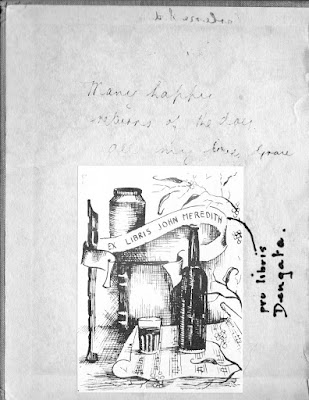 Many happy
returns of the Day
all my love, Grace
EX LIBRIS JOHN MEREDITH
pro libris
Dengate.